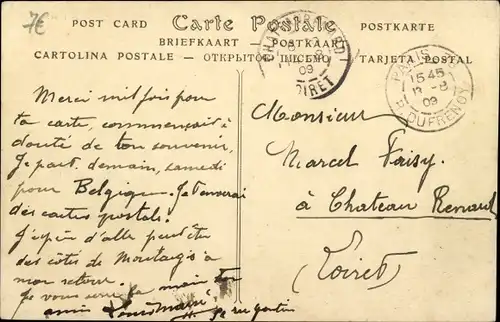 7€
POST CARD
Carte Postale
POSTKARTE
BRIEFKAART - POSTKAART
CARTOLINA POSTALE - ОТКРЫТОЕ ПИСЬМО - TARJETA POSTAL
09
LOIRET
PARIS
15 45
13 - 8
09
R. DUFRENOY
Merci mil fois pour
ta carte, commençais à
douté de ton souvenir,
Je part demain, samedi
pour Belgique. Je t'enverai
des cartes postals.
J'espère d'allé peut être
des côtes de Montargis a
mon retour.
Je vous serre la main ton
amie
Monsieur
Marcel Faisy.
à Chateau Renard
(Loiret)